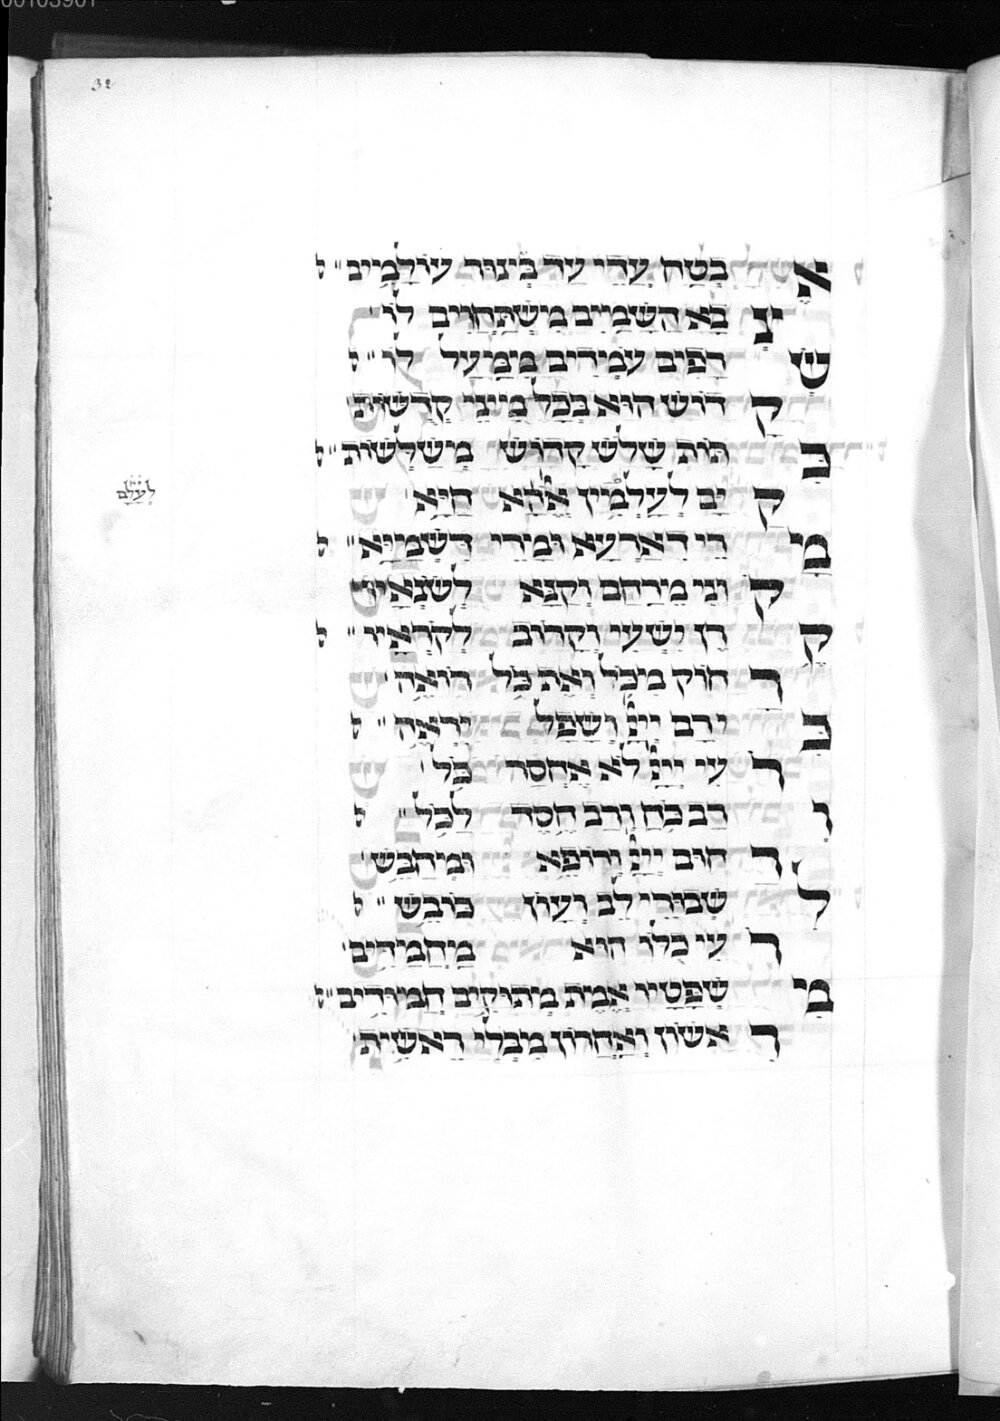 00103901
32
אבטח עדי עד בינוי עולמיים ל
צבא השמיים משתחוים לו
שרפים עמידים ממעל לו ל
קדוש הוא בכל מיני קדשות
בתות שלש קדוש משלשות ל
קים לעלמין אלהא חייא
לעלם
מרי דארעא ומרי דשמייא ל
קוני מרחם וקנא לשנאיו
קרן ישעי וקרוב לקראיו ל
רחוק מכל ואת כל רואה
כי רם ייי ושפל יראה ל
רעי ייי לא אחסר כל
ורב כח ורב חסד לכל ל
רחוב ייי ורופא ומחבש
לשבורי לב ועון כובש ל
רעי כלו הוא מחמדים
משפטיו אמת מתוקים חמודים ל
ראשון ואחרון מבלי ראשית